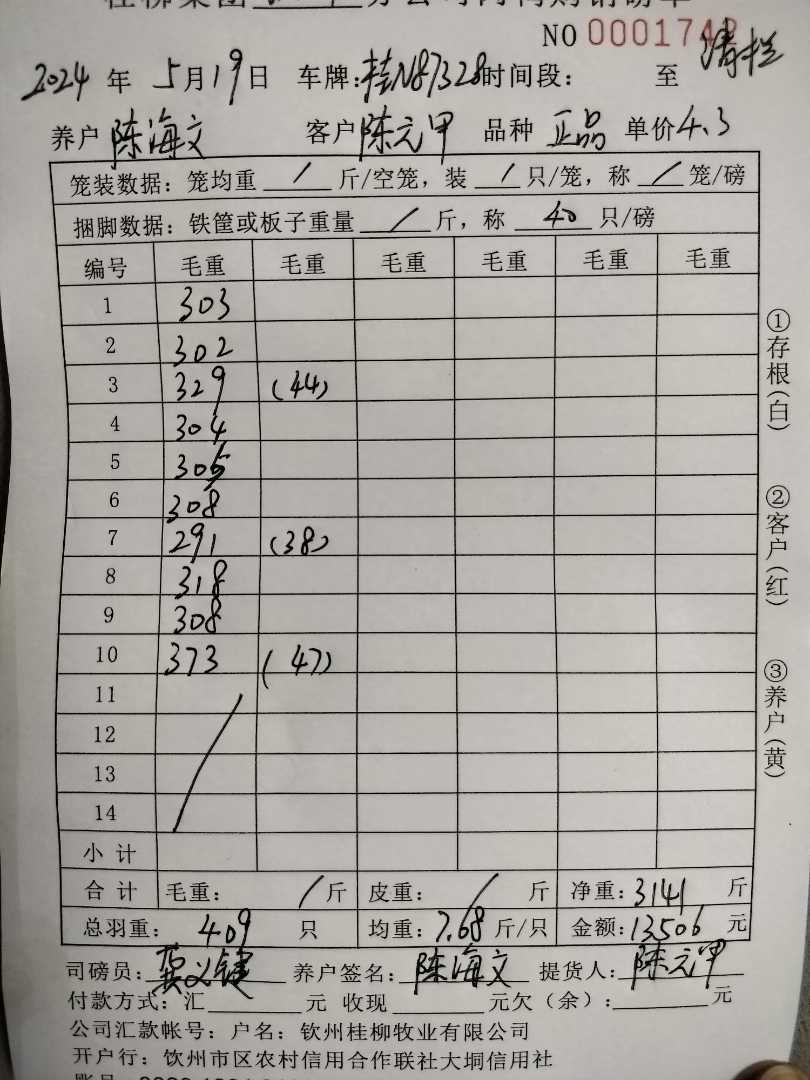 NO 0001742
清栏
2024年5月19日 车牌:桂N87328时间段: 至
养户 陈海文 客户陈元甲 品种 正品 单价4.3
笼装数据: 笼均重 / 斤/空笼, 装 / 只/笼, 称 / 笼/磅
捆脚数据: 铁筐或板子重量 / 斤, 称 40 只/磅
编号 毛重 毛重 毛重 毛重 毛重 毛重
1 303
2 302
3 329 (44)
4 304
5 305
6 308
7 291 (38)
8 318
9 308
10 373 (47)
11
12
13
14
小计
合计 毛重: / 斤 皮重: / 斤 净重:3141 斤
总羽重: 409 只 均重:7.68斤/只 金额:13506 元
司磅员: 龚义键 养户签名: 陈海文 提货人: 陈元甲
付款方式: 汇 元 收现 元欠(余): 元
公司汇款帐号: 户名: 钦州桂柳牧业有限公司
开户行: 钦州市区农村信用合作联社大垌信用社
①存根(白)
②客户(红)
③养户(黄)